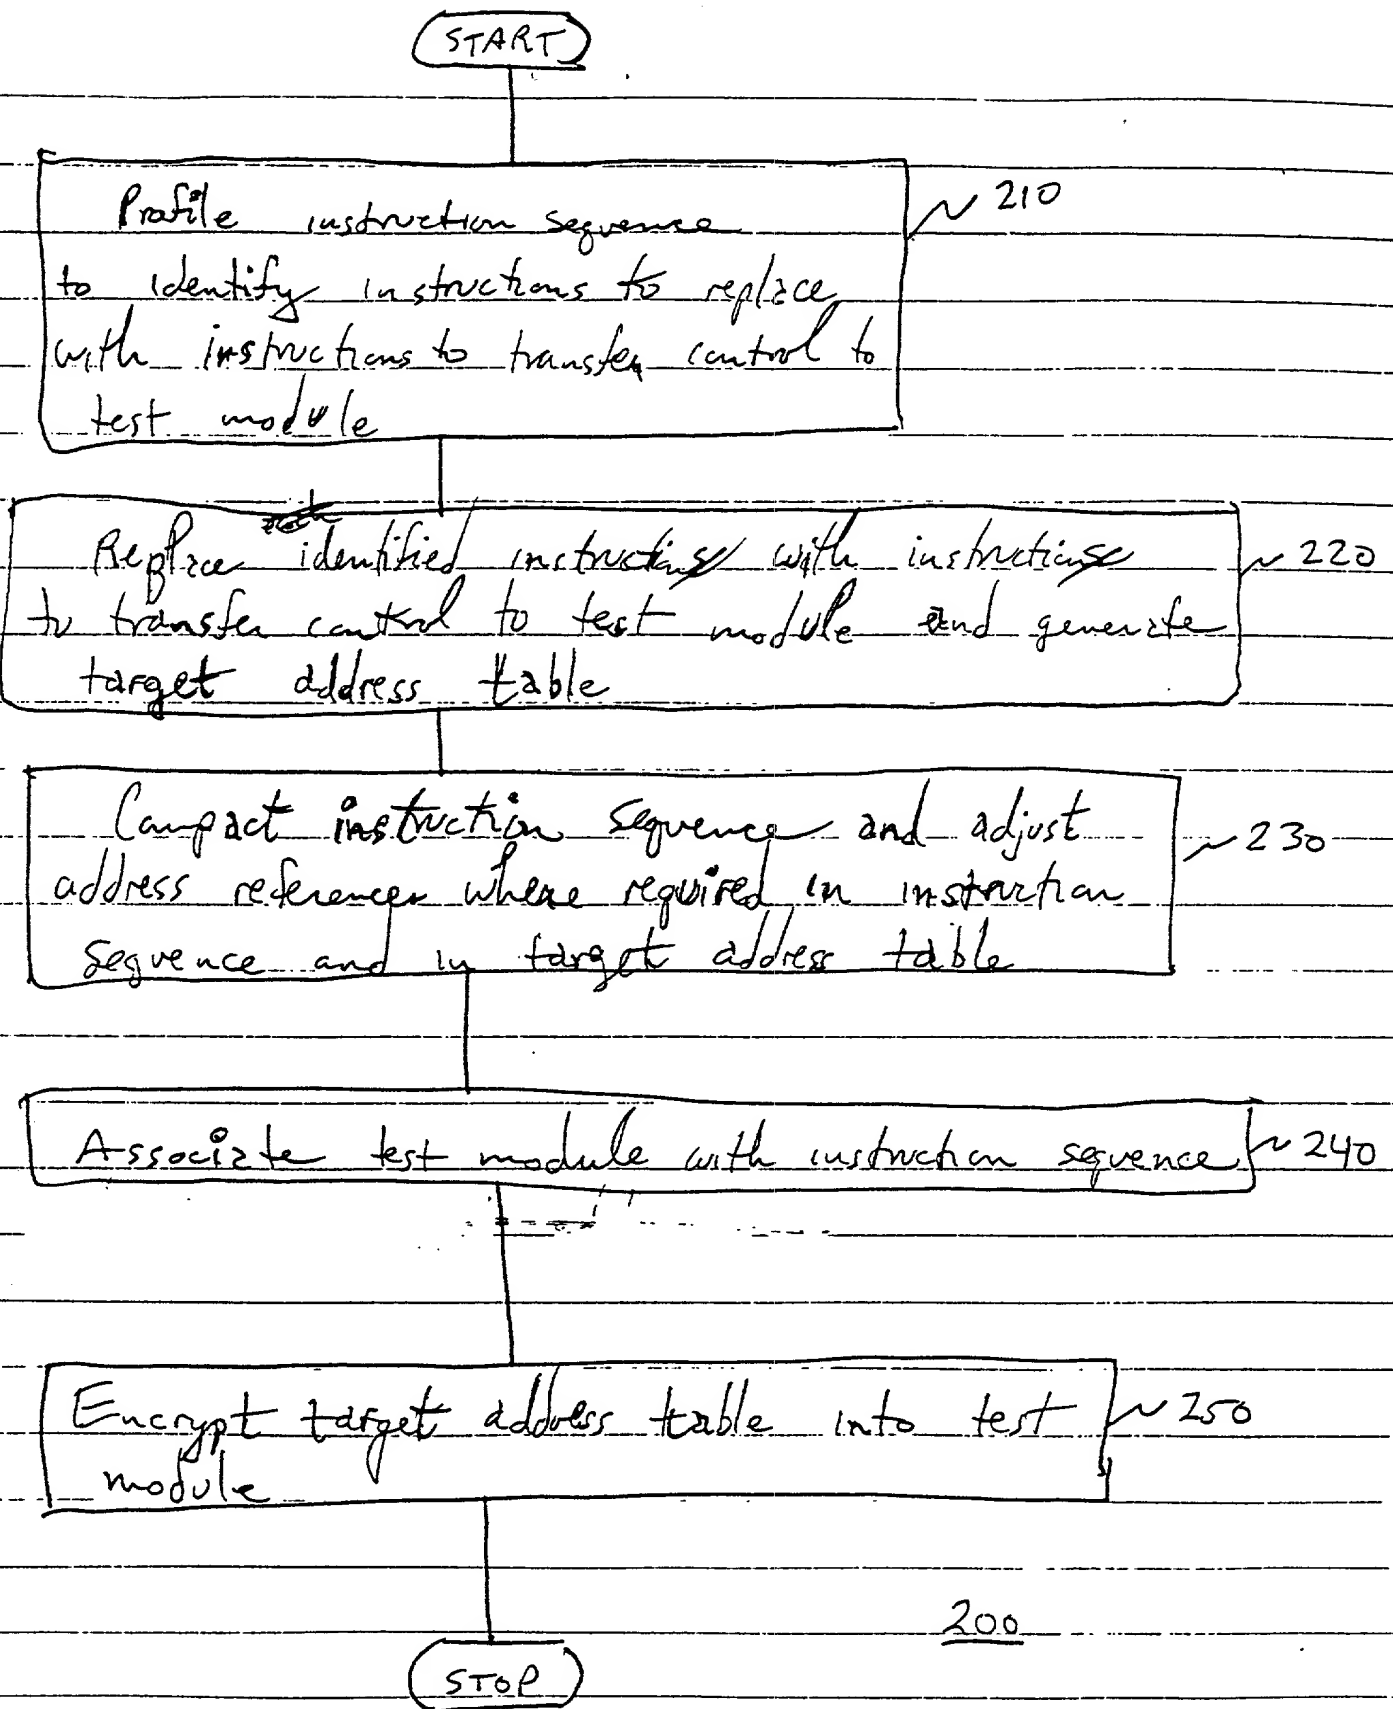 START
Profile instruction sequence
210
to identify instructions to replace
with instructions to transfer control to
test module
Replace identified instructions with instructions
220
to transfer control to test module and generate
target address table
Compact instruction sequence and adjust
230
address references where required in instruction
sequence and in target address table
Associate test module with instruction sequence
240
Encrypt target address table into test
250
module
200
STOP